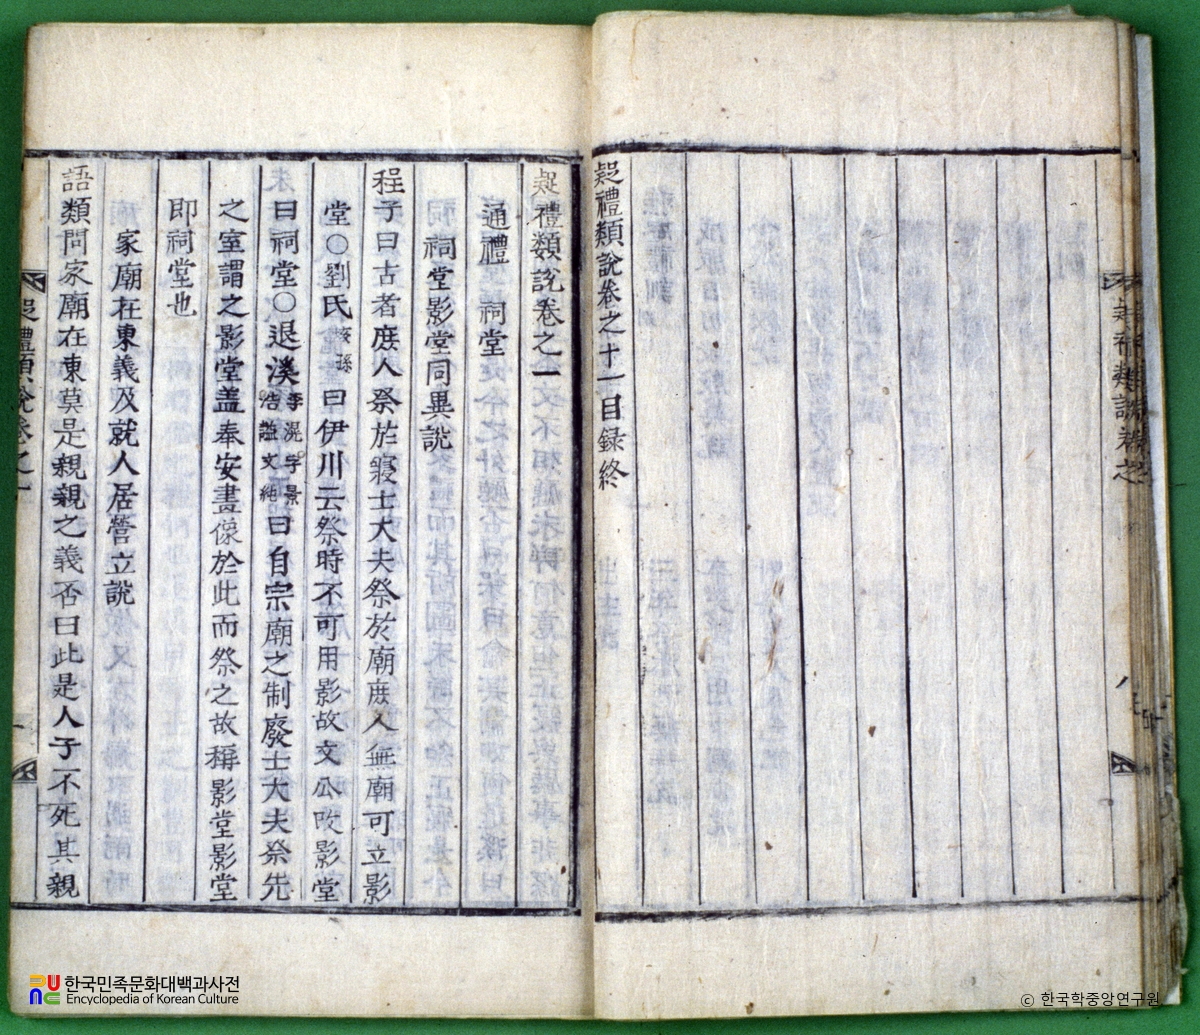 疑禮類說卷之十一目録終
疑禮類說卷之一
通禮 祠堂
祠堂影堂同異說
程子曰古者庶人祭於寢士大夫祭於廟庶人無廟可立影
堂○劉氏垓孫曰伊川云祭時不可用影故文公改影堂
曰祠堂○退溪李滉字景浩謚文純曰自宗廟之制廢士大夫祭先
之室謂之影堂盖奉安畫像於此而祭之故稱影堂影堂
即祠堂也
家廟在東義及就人居營立說
語類問家廟在東莫是親親之義否曰此是人子不死其親
疑禮類說卷之一
한국민족문화대백과사전
Encyclopedia of Korean Culture
© 한국학중앙연구원